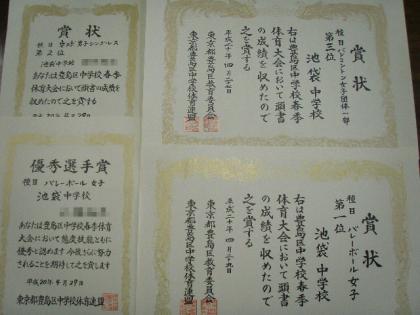 賞状
種目 卓球 男子シングルス
第2位
池袋中学校
あなたは豊島区中学校春季
体育大会において頭書の成績を
収めたので之を賞する
平成20年4月29日
賞状
種目 バドミントン女子団体一部
第三位
池袋中学校
右は豊島区中学校春季
体育大会において頭書
の成績を収めたので
之を賞する
平成二十年四月二十七日
東京都豊島区教育委員会
東京都豊島区中学校体育連盟
優秀選手賞
種目 バレーボール 女子
池袋中学校
あなたは豊島区中学校春季体育
大会において態度技能ともに
優秀と認めます 今後さらに努力
されることを期待して之を賞します
平成20年4月29日
東京都豊島区中学校体育連盟
賞状
種目 バレーボール女子
第一位
池袋中学校
右は豊島区中学校春季
体育大会において頭書
の成績を収めたので
之を賞する
平成二十年四月二十九日
東京都豊島区教育委員会
東京都豊島区中学校体育連盟